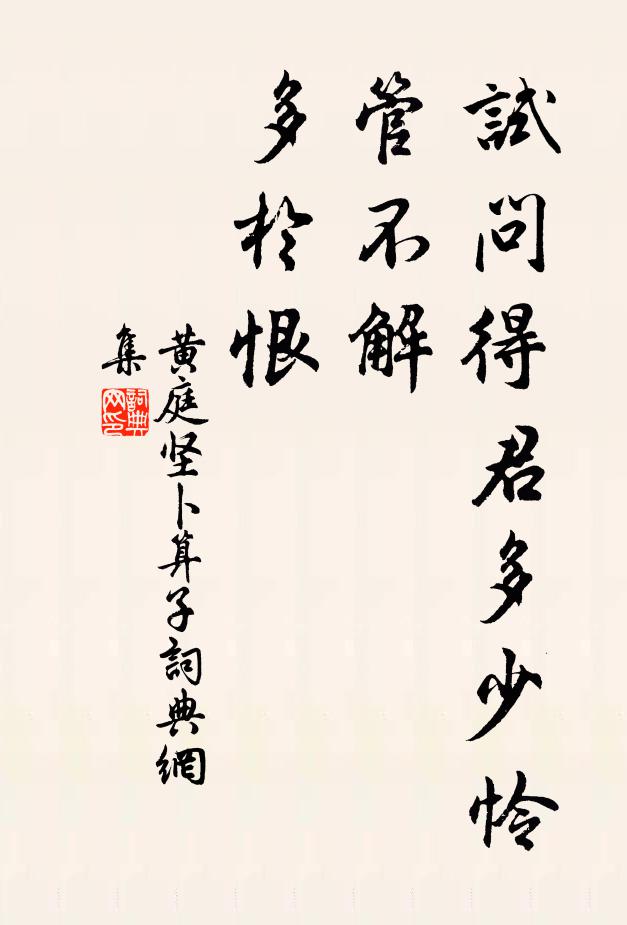 試問得君多少怜
管不解
多於恨
黄庭坚卜算子詞典網
集
詞典
网印